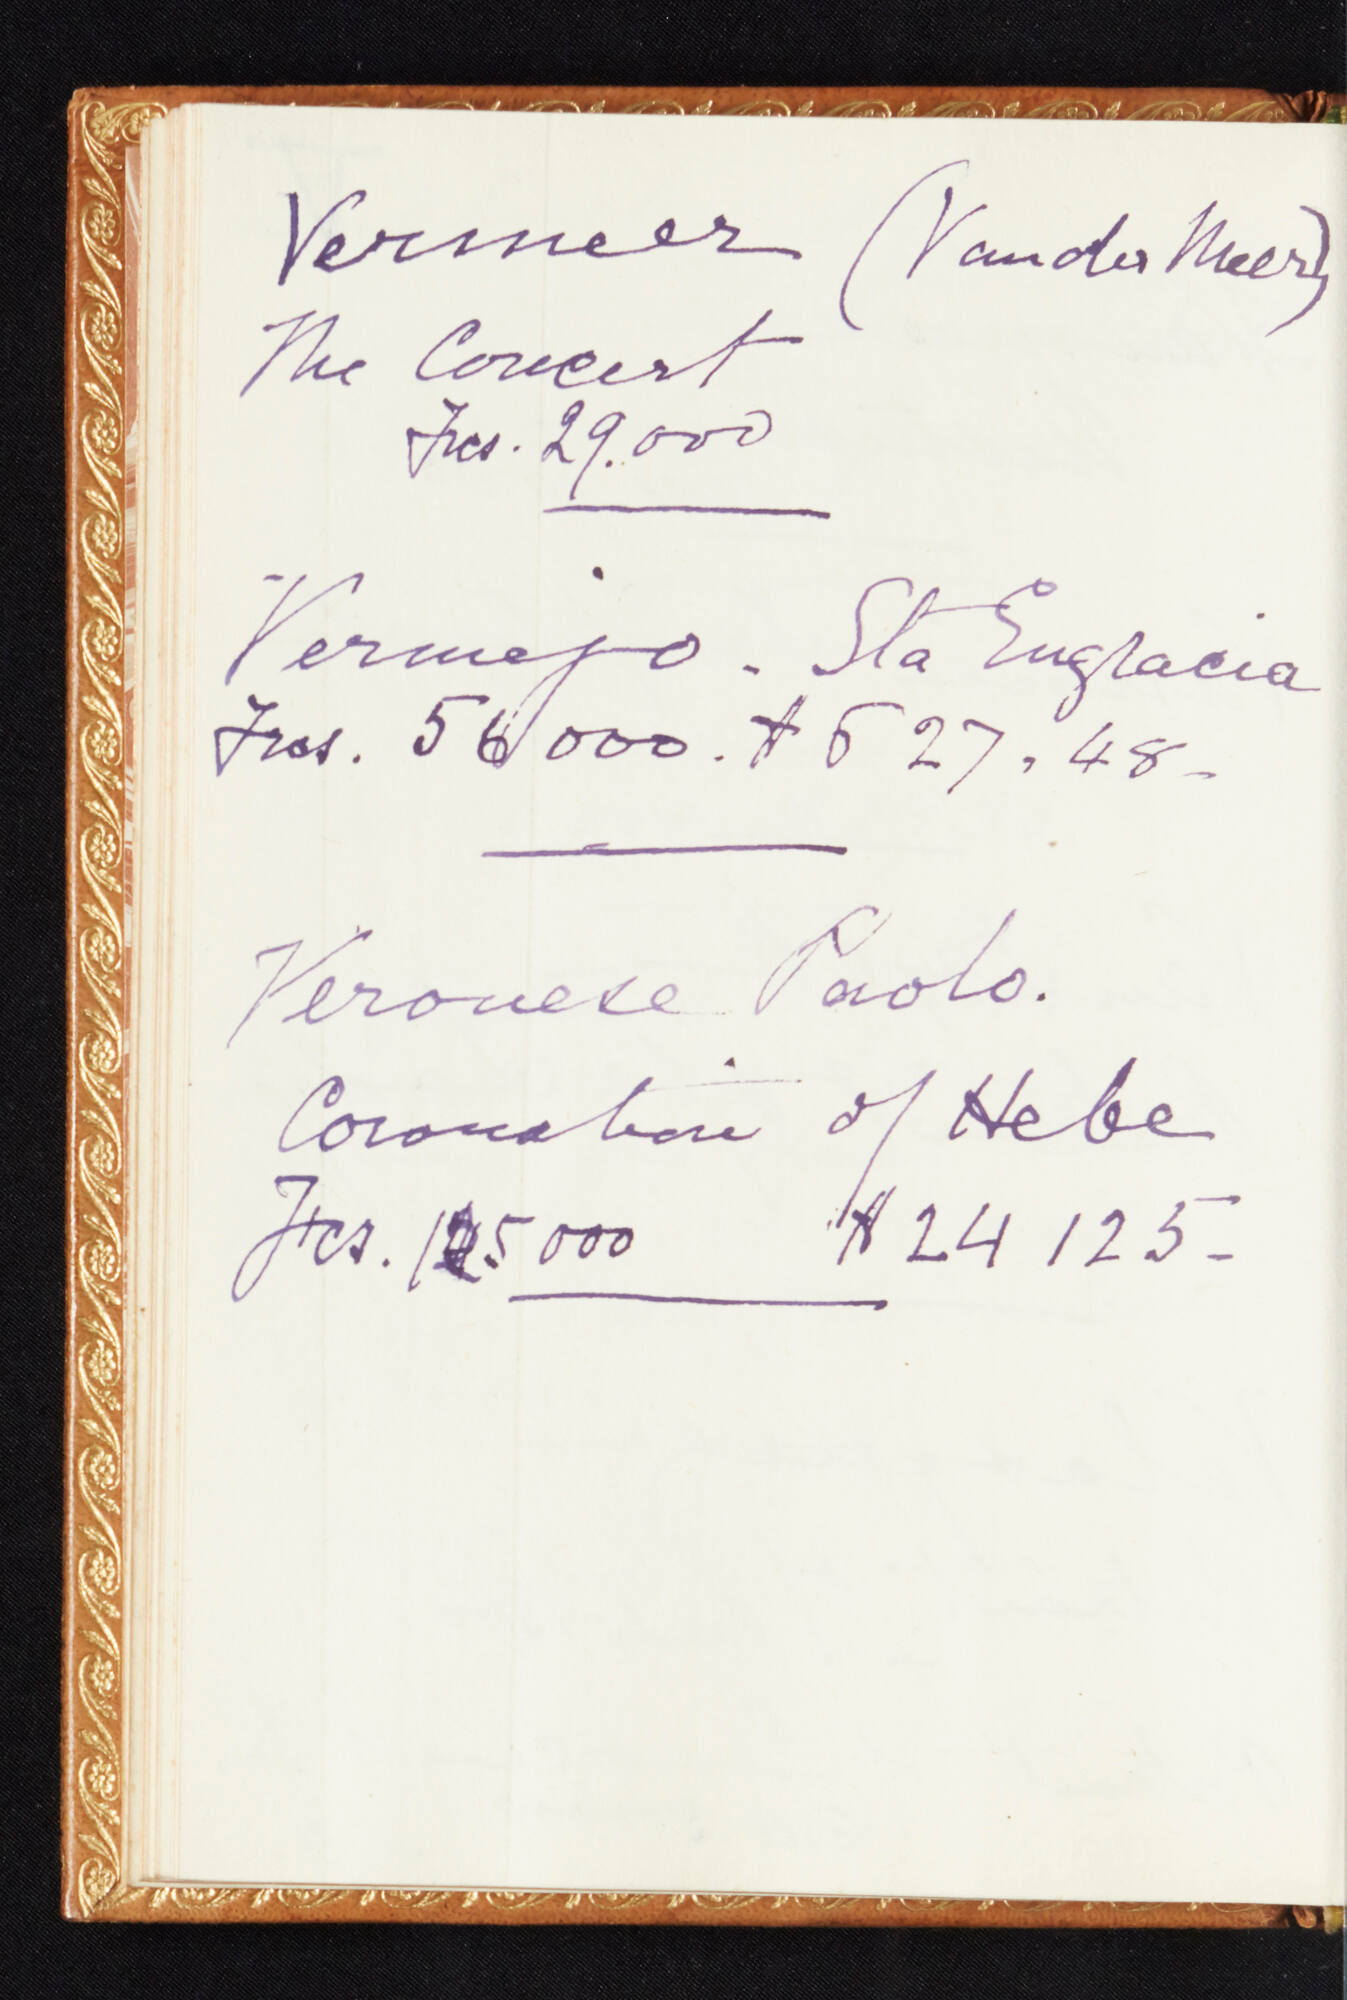 Vermeer (Van der Meer)
The Concert
Frcs. 29.000
Vermejo. Sta Engracia
Frcs. 56000. $ 527.48-
Veronese Paolo.
Coronation of Hebe
Frcs. 125.000 $ 24 125-